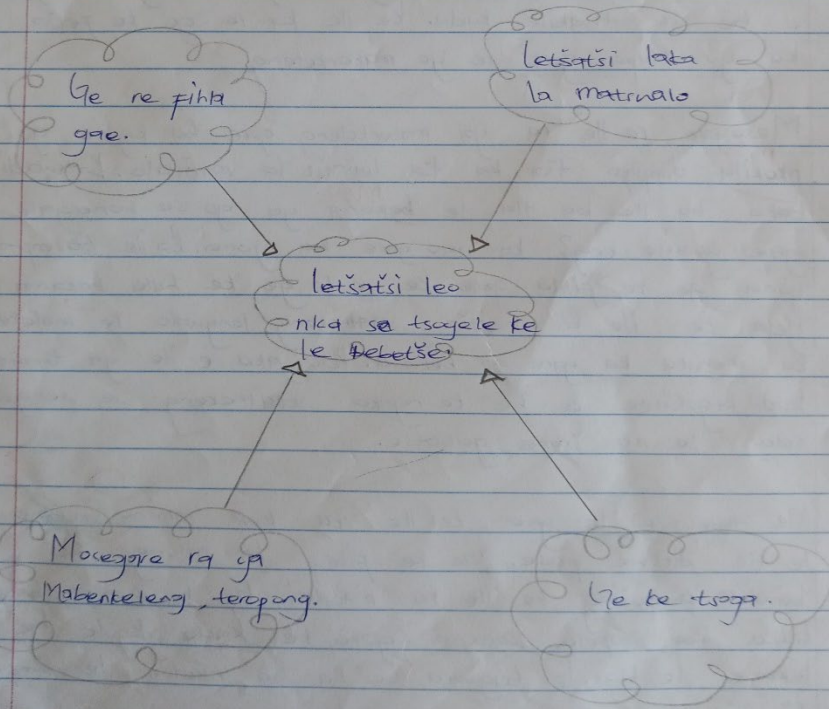 Ge re fihla
gae.
letšatši laka
la matswalo
letšatši leo
nka se tsoyele ke
le lebetše.
Mosegare ra ya
Mabenkeleng, toropong.
Ge ke tsoga.